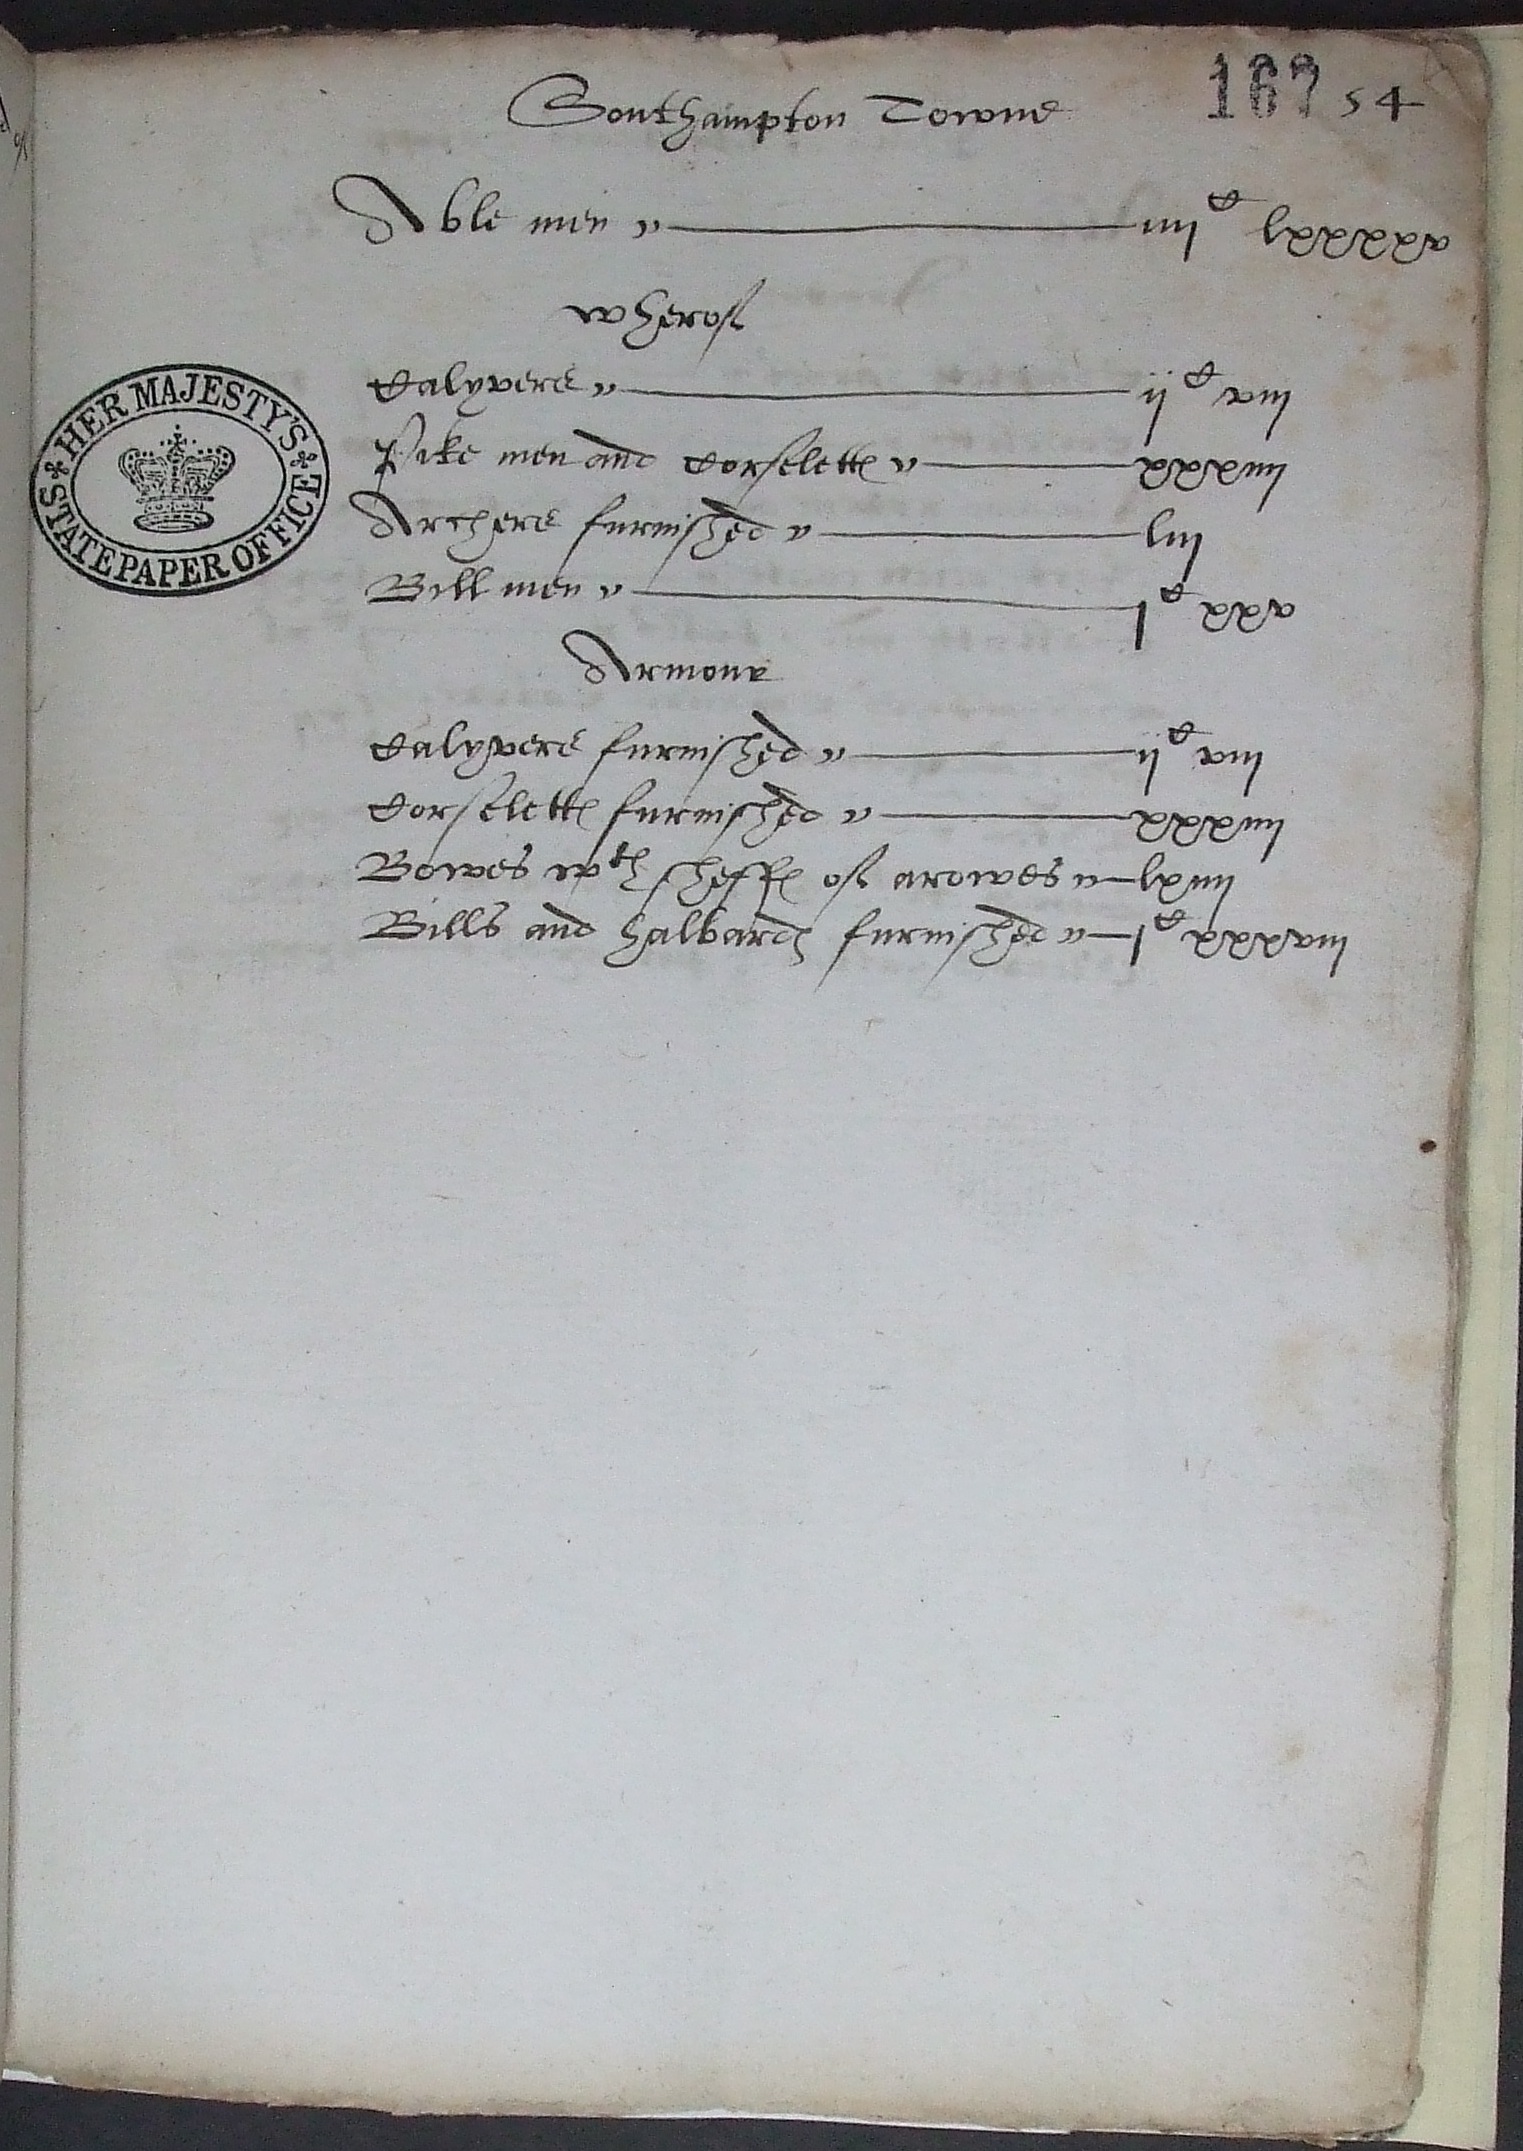 Southampton Towne
167 54
Able men
wherof
Calyvers ij C
Pike men and Corseletts
Archers furnished liij
Bill men j C
Armour
Calyvers furnished ij C
Corseletts furnished
Bowes wth sheffes of arowes lxiiij
Bills and halbards furnished j C
HER MAJESTY'S
STATE PAPER OFFICE